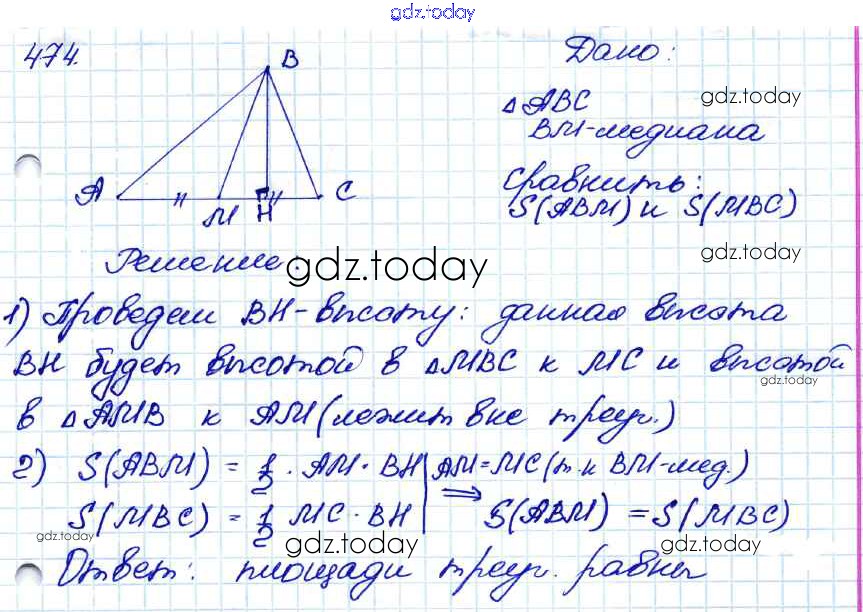 gdz.today
474.
B
Дано:
△ABC
gdz.today
BM-медиана
A
M
H
C
Сравнить:
S(ABM) и S(MBC)
gdz.today
Решение.
gdz.today
1) Проведем BH-высоту: данная высота
BH будет высотой в △MBC к MC и высотой
gdz.today
в △AMB к AM (лежит вне треуг.)
2) S(ABM) = 1/2 · AM · BH | AM = MC (т.к BM-мед.)
gdz.today
S(MBC) = 1/2 MC · BH | ⇒ S(ABM) = S(MBC)
gdz.today
gdz.today
gdz.today
Ответ: площади треуг. равны